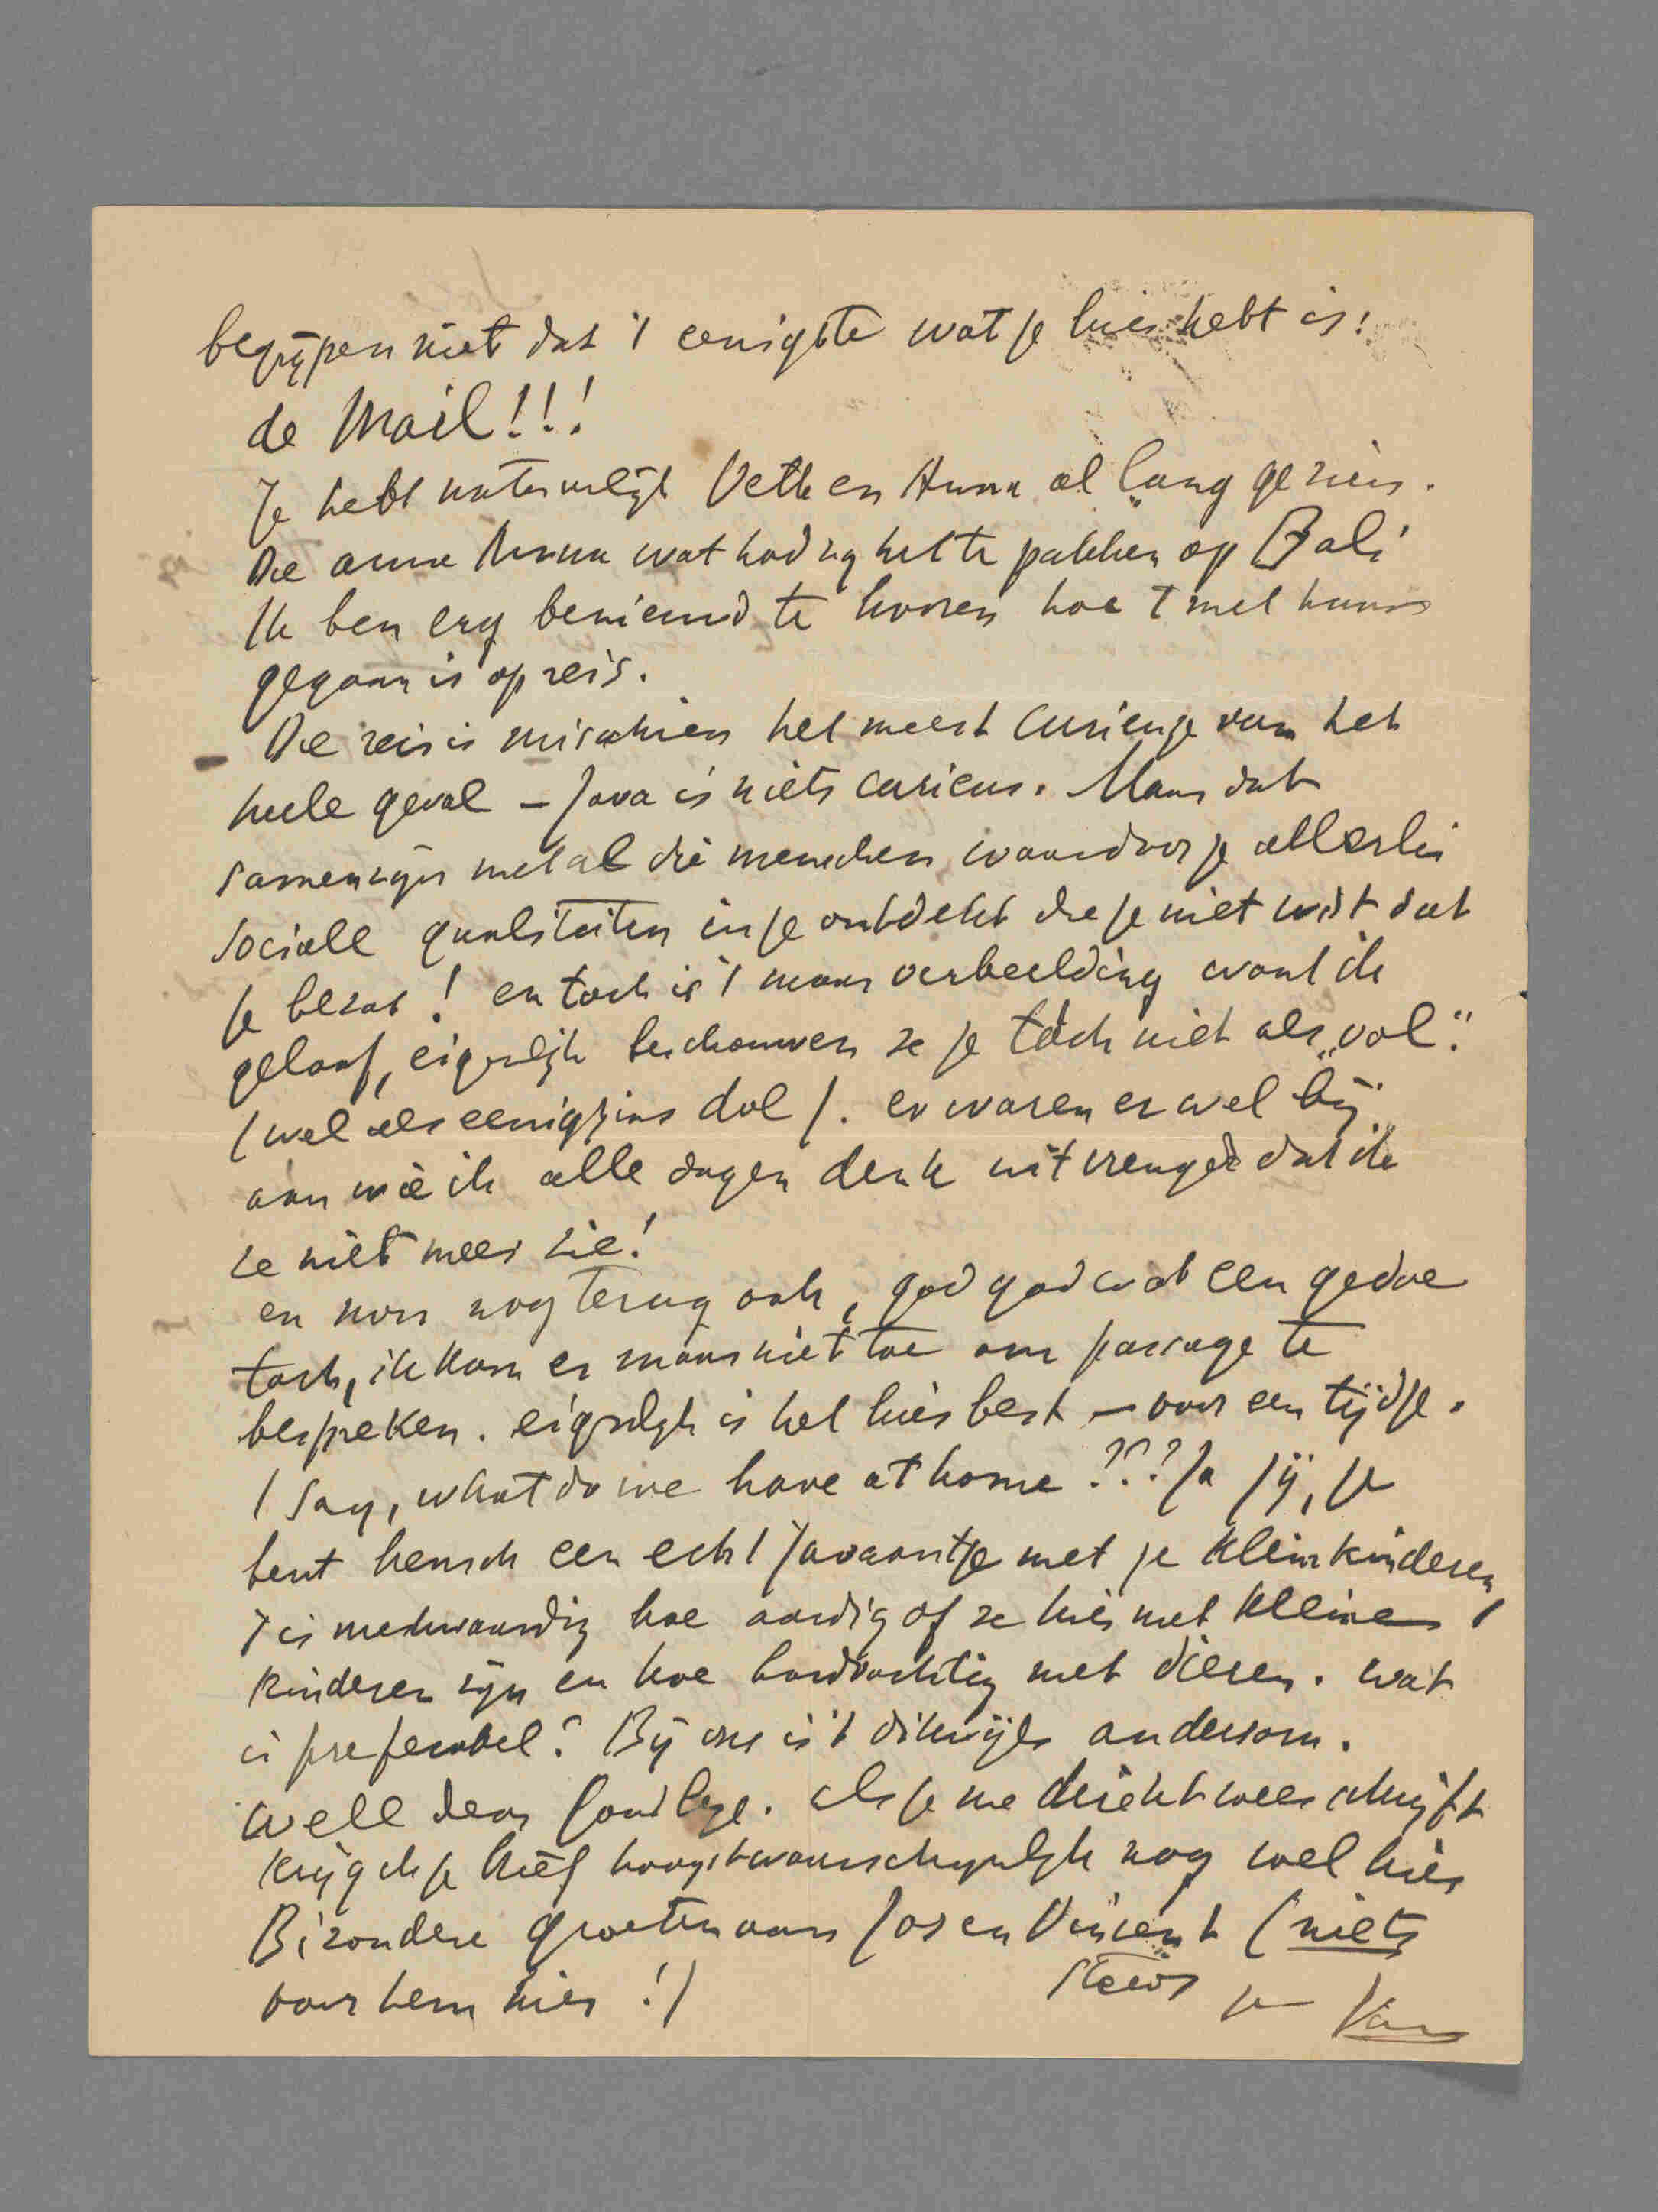 begrijpen niet dat 't eenigste wat je hier hebt is:
de Mail!!!
Je hebt natuurlijk Veth en Anna al lang gezien.
Die arme Anna wat had zij het te pakken op Bali
Ik ben erg benieuwd te hooren hoe 't met haar
gegaan is op reis.
Die reis is misschien het meest curieuze van het
heele geval – Java is niets curieus. Maar dat
samenzijn met al die menschen waardoor je allerlei
sociale qualiteiten in je ontdekt die je niet wist dat
je bezat! en toch is 't maar verbeelding want ik
geloof, eigenlijk beschouwen ze je tòch niet als „vol".
(wel als eenigzins dol). er waren er wel bij
aan wie ik alle dagen denk uit vreugde dat ik
ze niet meer zie!
en nou nog terug ook, god god wat een gedoe
toch, ik kom er maar niet toe om passage te
bespreken. eigenlijk is het hier best – voor een tijdje.
I say, what do we have at home??? Ja jij, je
bent heusch een echt Javaantje met je kleinkinderen,
't is merkwaardig hoe aardig of ze hier met kleine
kinderen zijn en hoe hardvochtig met dieren. wat
is preferabel? Bij ons is 't dikwijls andersom.
Well dear goodbye. als je me direkt weer schrijft
krijg ik je brief hoogstwaarschijnlijk nog wel hier
Bizondere groeten aan Jos en Vincent (niets
voor hem hier!)
steeds je